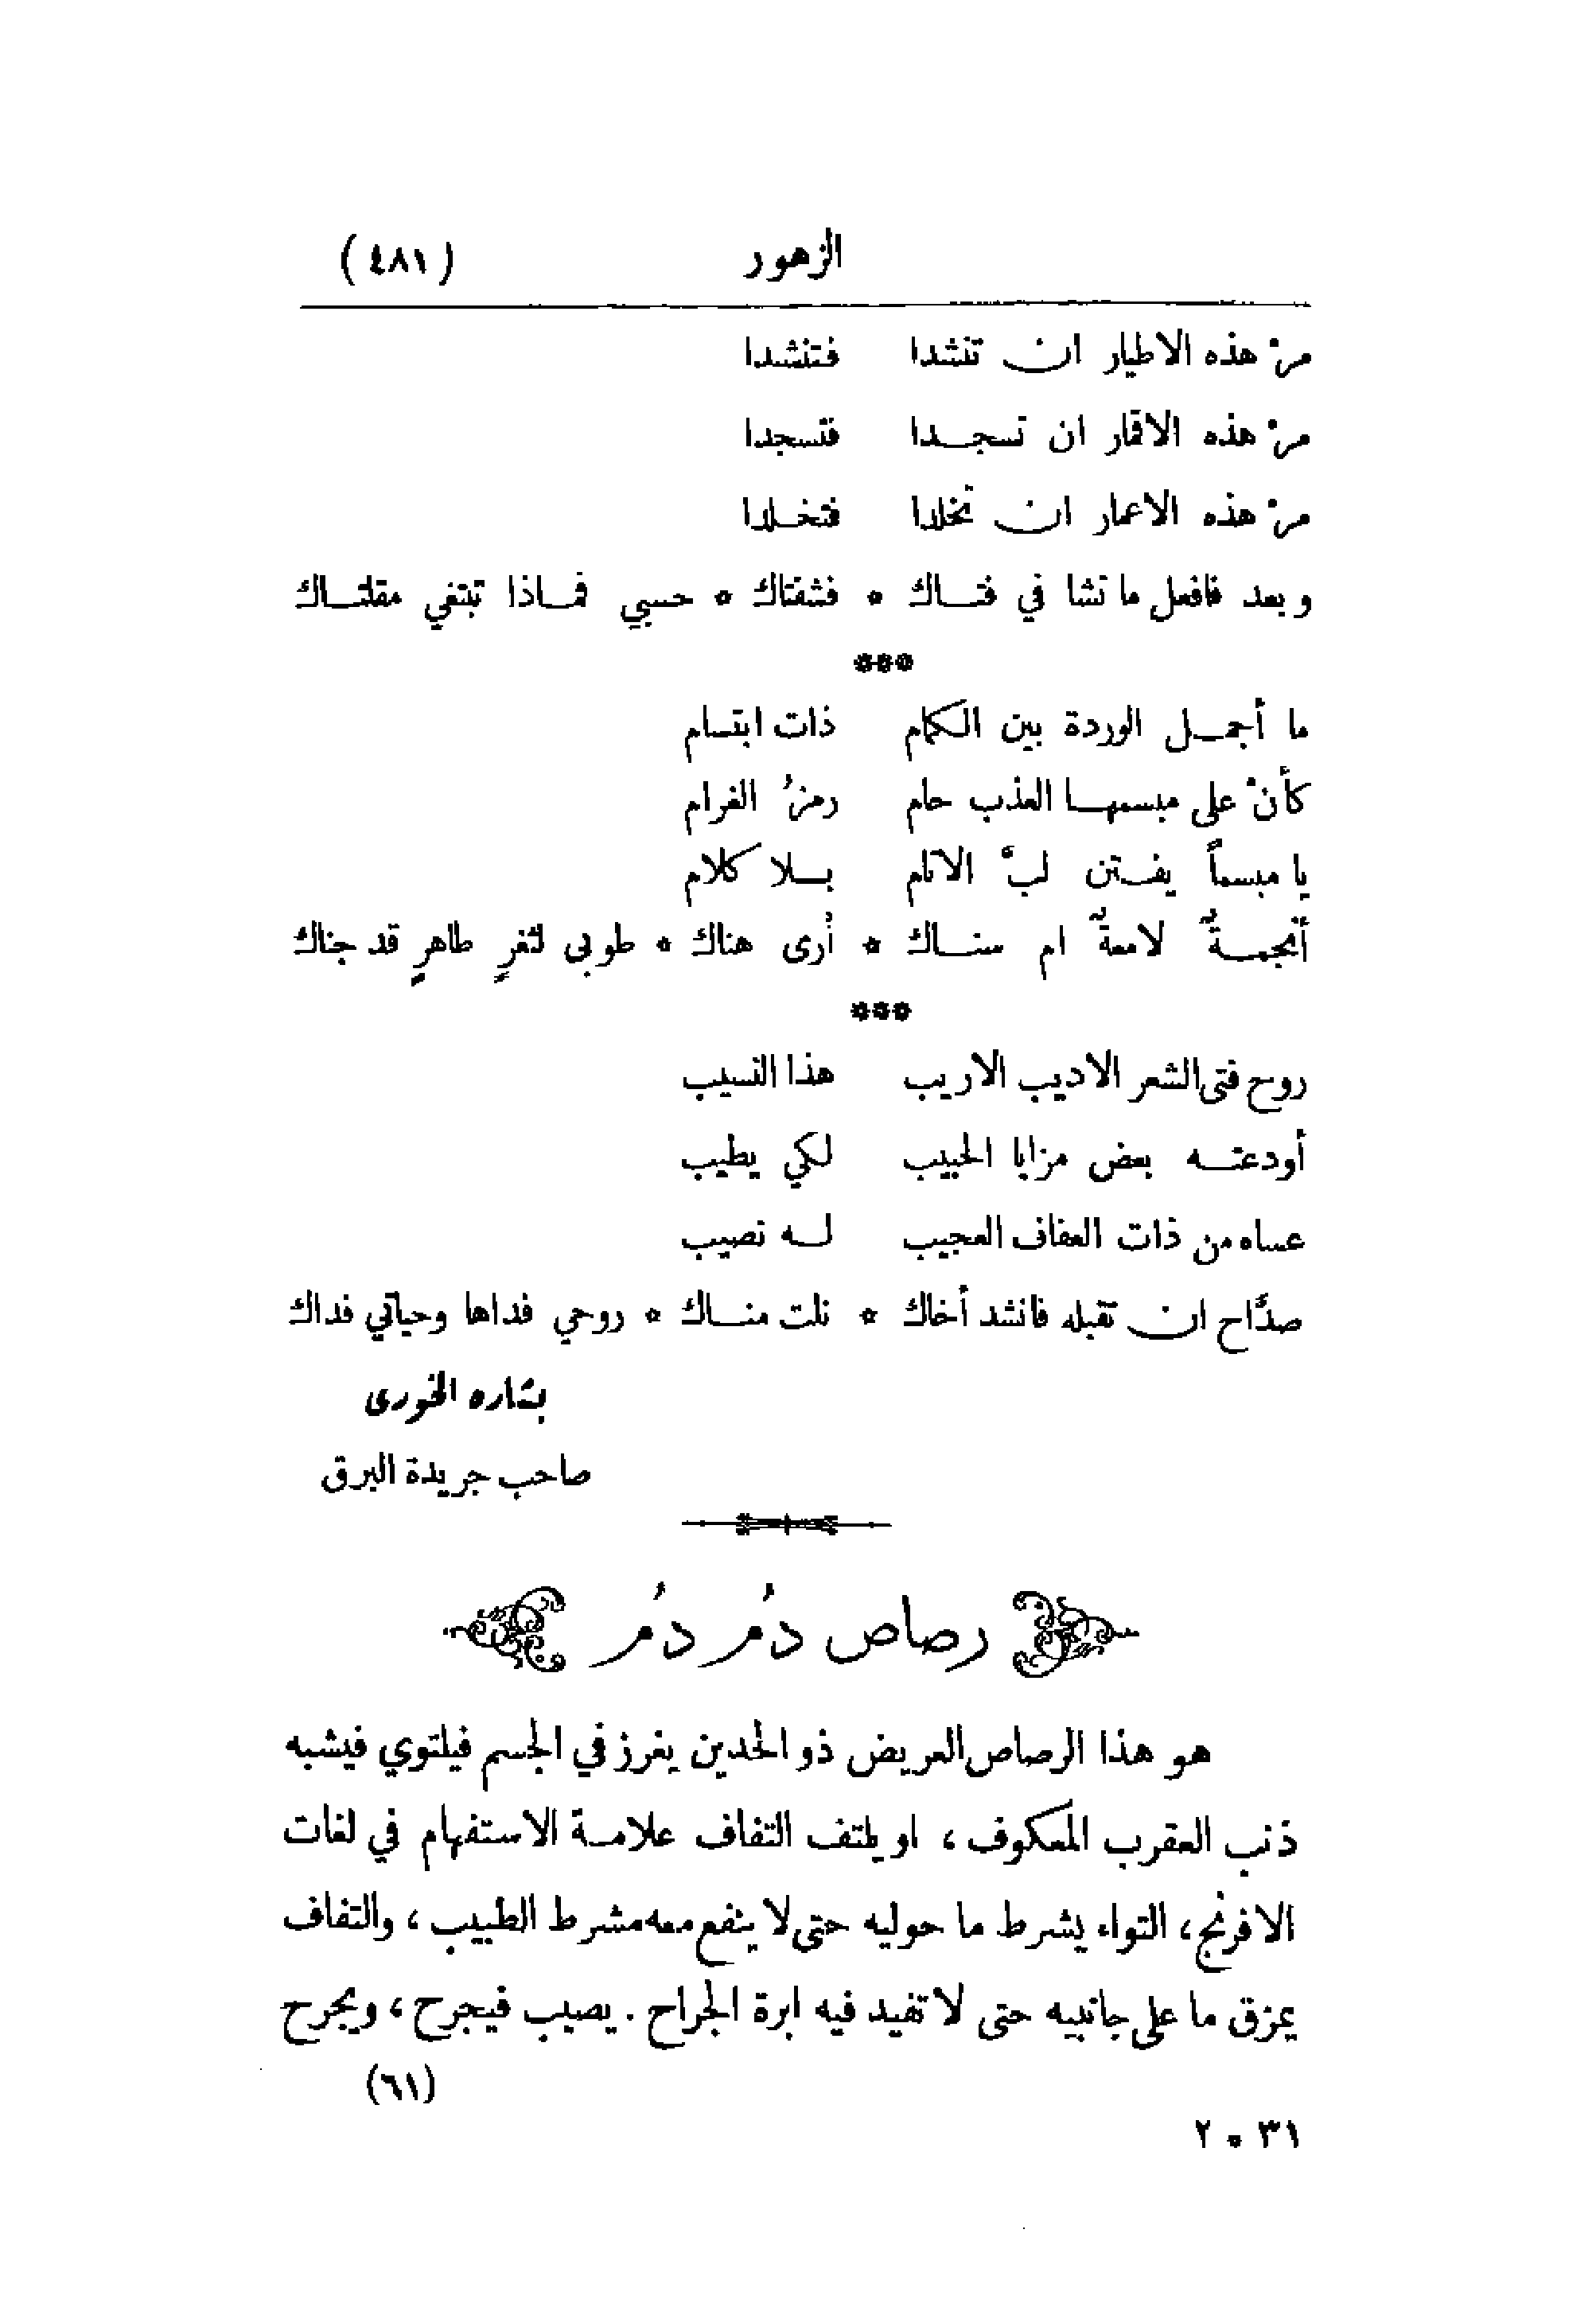 الزهور (٤٨١)
مرْ هذه الاطيار ان تنشدا فتنشدا
مرْ هذه الاقمار ان تسجدا فتسجدا
مرْ هذه الاعمار ان تخلدا فتخلدا
وبعد فافعل ما تشا في فتاك * فشفتاك * حسبي فماذا تبتغي مقلتاك
***
ما أجمل الوردة بين الكمام ذات ابتسام
كأنْ على مبسمها العذب حام رمزُ الغرام
يا مبسماً يفتن لبَّ الانام بلا كلام
أنجمةٌ لامعةٌ ام سناك * أرى هناك * طوبى لثغرٍ طاهرٍ قد جناك
***
روح فتى الشعر الاديب الاريب هذا النسيب
أودعته بعض مزايا الحبيب لكي يطيب
عساه من ذات العفاف العجيب له نصيب
صدَّاح ان تقبله فانشد أخاك * نلت مناك * روحي فداها وحياتي فداك
بشاره الخورى
صاحب جريدة البرق
رصاص دُم دُم
هو هذا الرصاص العريض ذو الحدين يغرز في الجسم فيلتوي فيشبه
ذنب العقرب المعكوف، او يلتف التفاف علامة الاستفهام في لغات
الافرنج، التواء يشرط ما حوليه حتى لا ينفع معه مشرط الطبيب، والتفاف
يمزق ما على جانبيه حتى لا تفيد فيه ابرة الجراح. يصيب فيجرح، ويجرح
(٦١)
٣١ * ٢